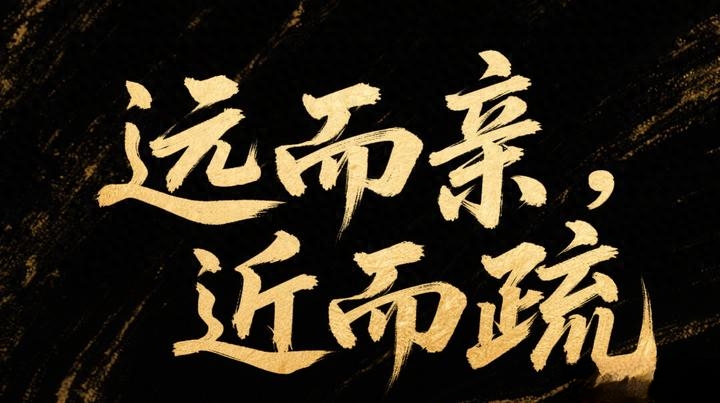 远而亲，
近而疏